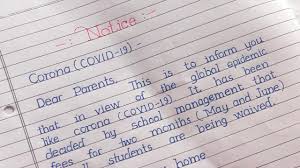 -: Notice :-
Corona (COVID-19) -
Dear Parents. This is to inform you
that in view of the global epidemic
like corona (COVID-19) It has been
decided by school management that
fees for two months (May and June)
students are being waived.
home